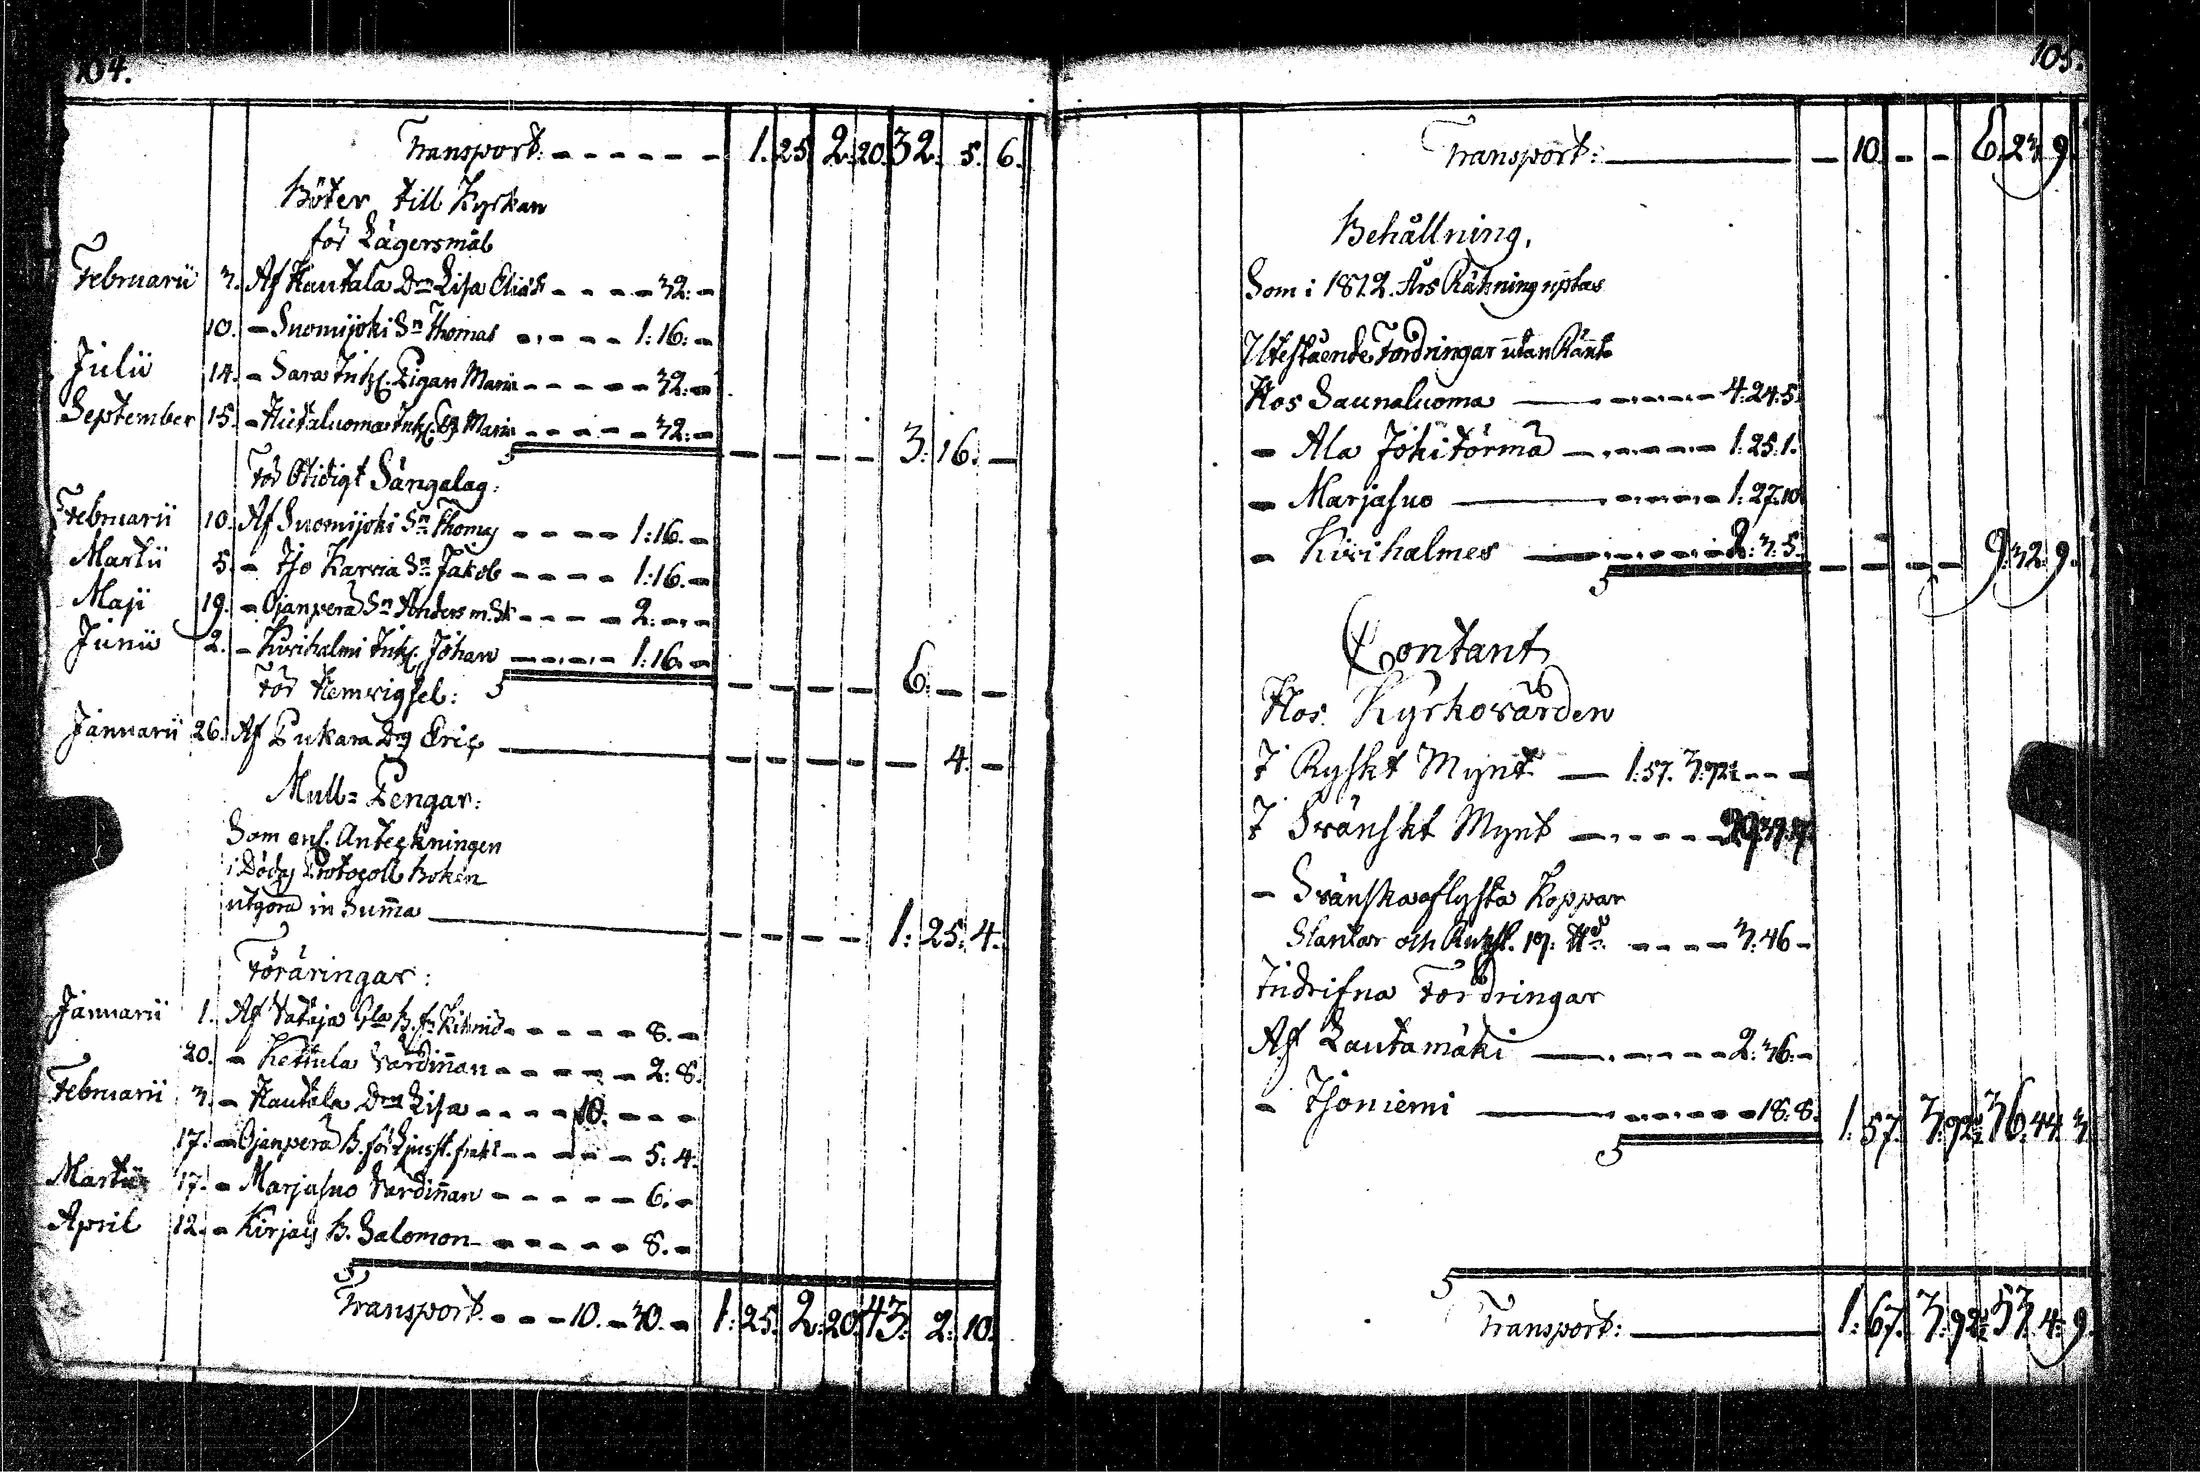 104.
Transport: 1. 25. 2. 20. 32. 5. 6.
Böter till Kyrkan
för Lägersmål
Februarii 3. Af Hautala Drn Lisa 32. –
10. – Suomijoki Sn Thomas 1: 16. –
Julii 14. – Sara Inh. Pigan Maria 32. –
September 15. – Hietaluoma Inh. Maria 32: –
3: 16. –
För Otidigt Sängalag:
Februarii 10. Af Suomijoki Sn Thomas 1: 16. –
Martii 5. – Iso Karvia Sn Jakob 1: 16. –
Maji 19. – Ojanperä Sn Anders 2: – –
Junii 2. – Kivihalmi Inh. Johan 1: 16. –
6. – –
För Hemvigsel:
Januarii 26. Af Pukara Eric 4. –
Mull= Pengar:
Som enl. Anteckningen
i Döds Protocoll Boken
utgöra in Summa 1: 25: 4.
Föräringar:
Januarii 1. Af Tataja 8. –
20. – Kettula Värdinnan 2: 8.
Februarii 3. – Hautala Drn Lisa 10. – – –
17. – Ojanperä B. för 5: 4.
Martii 17. – Marjasuo Värdinnan 6. –
April 12. – Kirjais B. Salomon 8. –
Transport. 10. – 30. – 1: 25. 2: 20. 43: 2: 10.
105.
Transport: – 10. – – 6. 23. 9.
Behållning,
Som i 1812. Års Räkning uptas
Utestående Fordringar utan Ränta
Hos Saunaluoma 4: 24: 5.
– Ala Jokitörmä 1: 25: 1.
– Marjasuo 1: 27: 10
– Kivihalmes 2: 3: 5.
9: 32: 9.
Contant
Hos Kyrkovärden
I Ryskt Mynt 1: 57. 3: 92½ – –
I Svänskt Mynt
– Svänska aflysta Koppar
Slantar och 3: 46 –
Indrifna Fordringar
Af Lautamäki 2: 36. –
– Isoniemi 18: 8.
1: 57. 3: 92½ 36. 44. 3.
Transport: 1: 67. 3: 92½ 53. 4: 9.